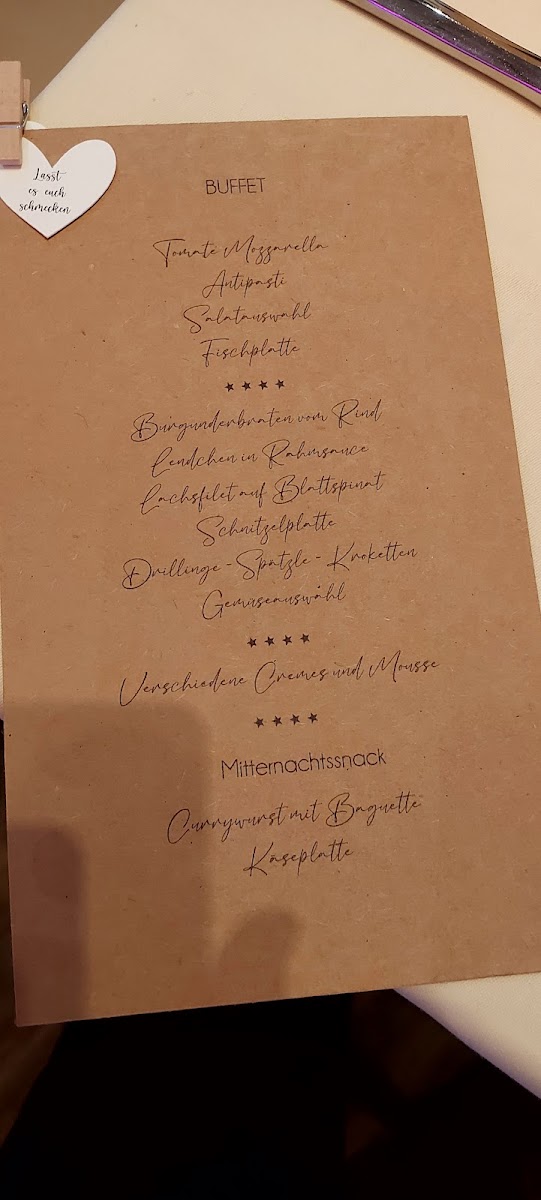 Lasst
es euch
schmecken
BUFFET
Tomate Mozzarella
Antipasti
Salatauswahl
Fischplatte
Burgunderbraten vom Rind
Lendchen in Rahmsauce
Lachsfilet auf Blattspinat
Schnitzelplatte
Drillinge - Spätzle - Kroketten
Gemüseauswahl
Verschiedene Cremes und Mousse
Mitternachtssnack
Currywurst mit Baguette
Käseplatte